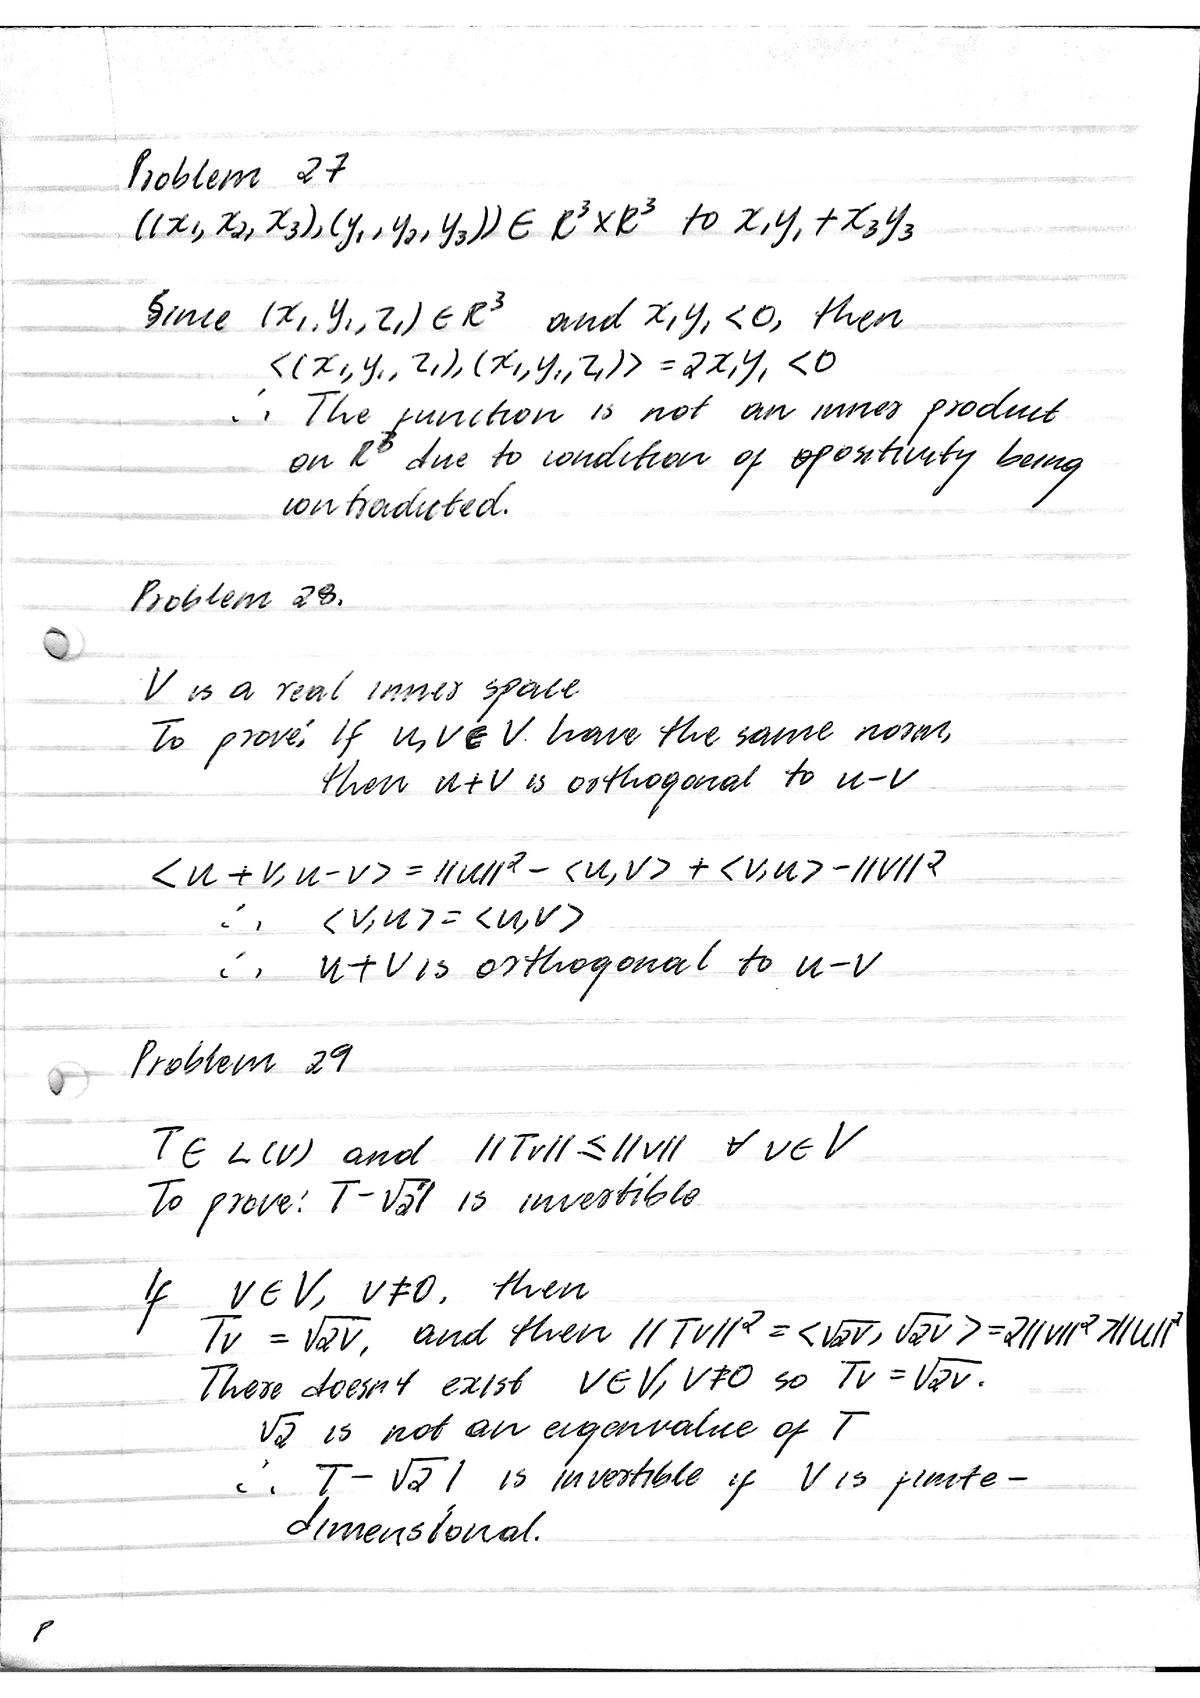 Problem 27
((x₁, x₂, x₃), (y₁, y₂, y₃)) ∈ R³×R³ to x₁y₁ + x₃y₃
Since (x₁, y₁, z₁) ∈ R³ and x₁y₁ < 0, then
<(x₁, y₁, z₁), (x₁, y₁, z₁)> = 2x₁y₁ < 0
∴ The function is not an inner product
on R³ due to condition of positivity being
contradicted.
Problem 28.
V is a real inner space
To prove: If u, v ∈ V have the same norm,
then u+v is orthogonal to u-v
<u+v, u-v> = ||u||² - <u,v> + <v,u> - ||v||²
∴ <v,u> = <u,v>
∴ u+v is orthogonal to u-v
Problem 29
T ∈ L(V) and ||Tv|| ≤ ||v|| ∀ v ∈ V
To prove: T-√2I is invertible
If v ∈ V, v ≠ 0, then
Tv = √2v, and then ||Tv||² = <√2v, √2v> = 2||v||² > ||u||²
There doesn't exist v ∈ V, v ≠ 0 so Tv = √2v.
√2 is not an eigenvalue of T
∴ T - √2 I is invertible if V is finite-
dimensional.
P